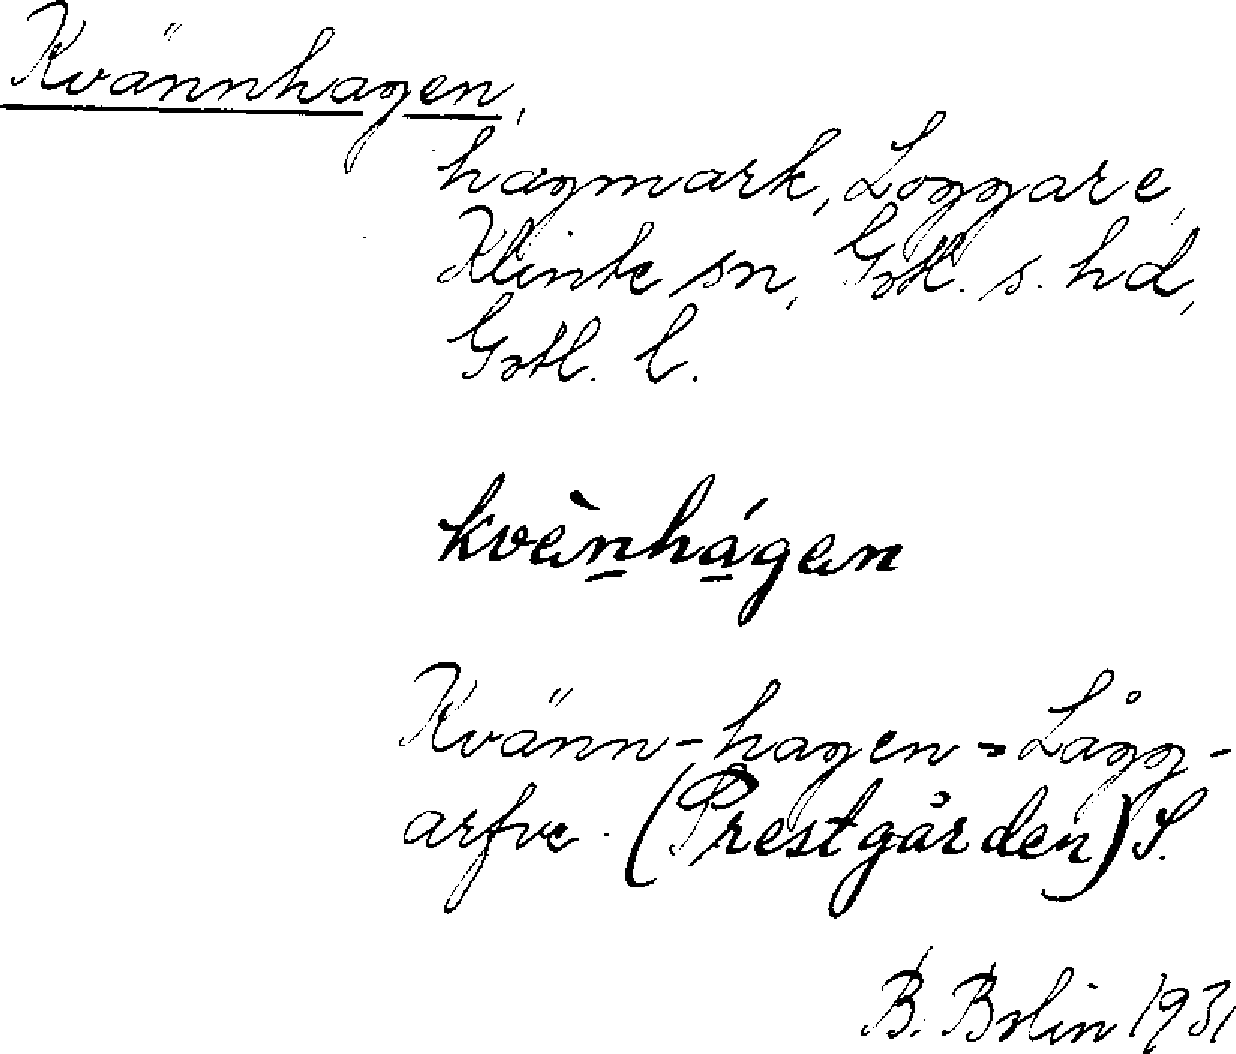 Kvännhagen,
hagmark, Loggare,
Klinte sn, Gotl. s. hd,
Gotl. l.
kvæ̀n̠há̠gæn
Kvänn-hagen = Lågg-
arfve. (Prestgården) S.
B. Bolin 1931